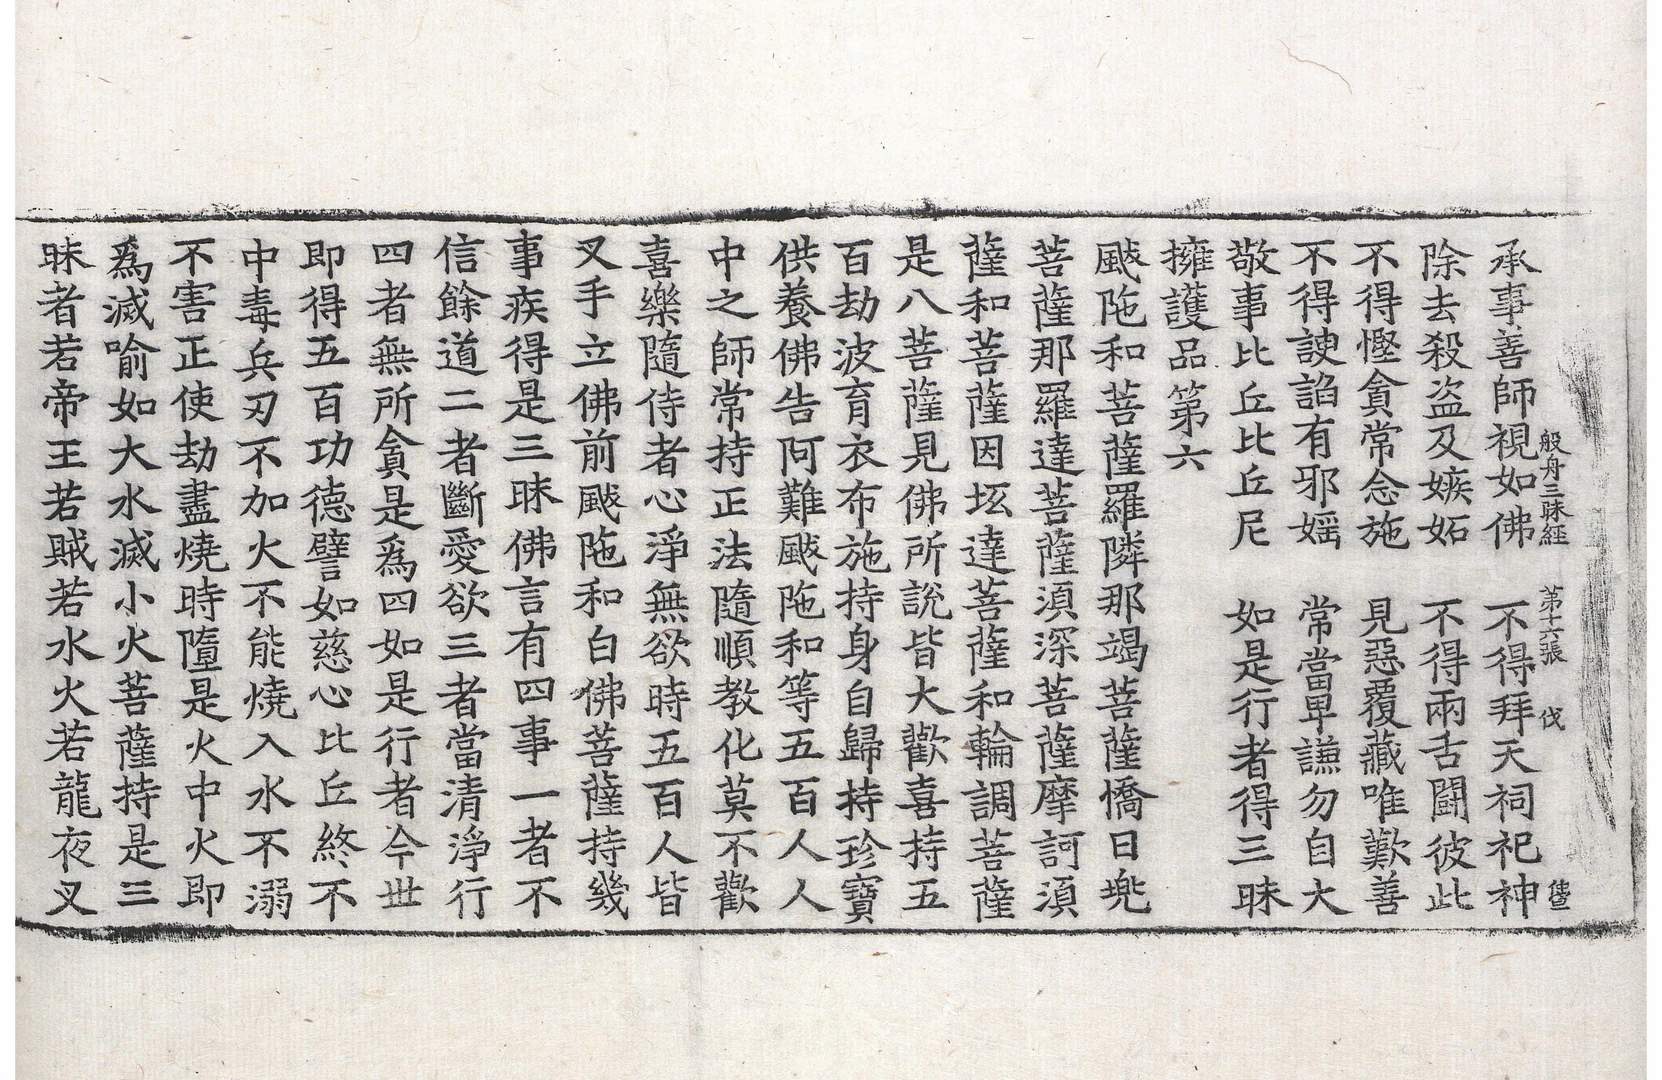 般舟三昧経 第十六張 伐
承事善師視如佛 不得拜天祠祀神
除去殺盗及嫉妬 不得兩舌鬪彼此
不得慳貪常念施 見惡覆藏唯歎善
不得諛諂有邪婬 常當卑謙勿自大
敬事比丘比丘尼 如是行者得三昧
擁護品第六
颰陁和菩薩羅隣那竭菩薩憍日兜
菩薩那羅達菩薩湏深菩薩摩訶湏
薩和菩薩因坻達菩薩和輪調菩薩
是八菩薩見佛所說皆大歡喜持五
百劫波育衣布施持身自歸持珍寶
供養佛告阿難颰陁和等五百人人
中之師常持正法隨順教化莫不歡
喜樂隨侍者心淨無欲時五百人皆
叉手立佛前颰陁和白佛菩薩持幾
事疾得是三昧佛言有四事一者不
信餘道二者斷愛欲三者當清淨行
四者無所貪是爲四如是行者今世
即得五百功德譬如慈心比丘終不
中毒兵刃不加火不能燒入水不溺
不害正使劫盡燒時墮是火中火即
爲滅喻如大水滅小火菩薩持是三
昧者若帝王若賊若水火若龍夜叉